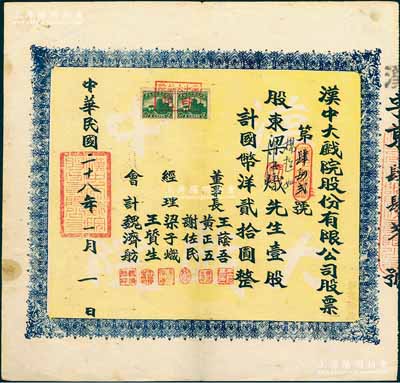 漢中大戲院股份有限公司股票
第肆拾貳號
股東梁子熾先生壹股
計國幣洋貳拾圓整
董事長 王蔭吾
黃正五
謝佐民
經理 梁子熾
王賢生
會計 魏濟舫
中華民國二十八年一月一日
漢字第肆拾貳號